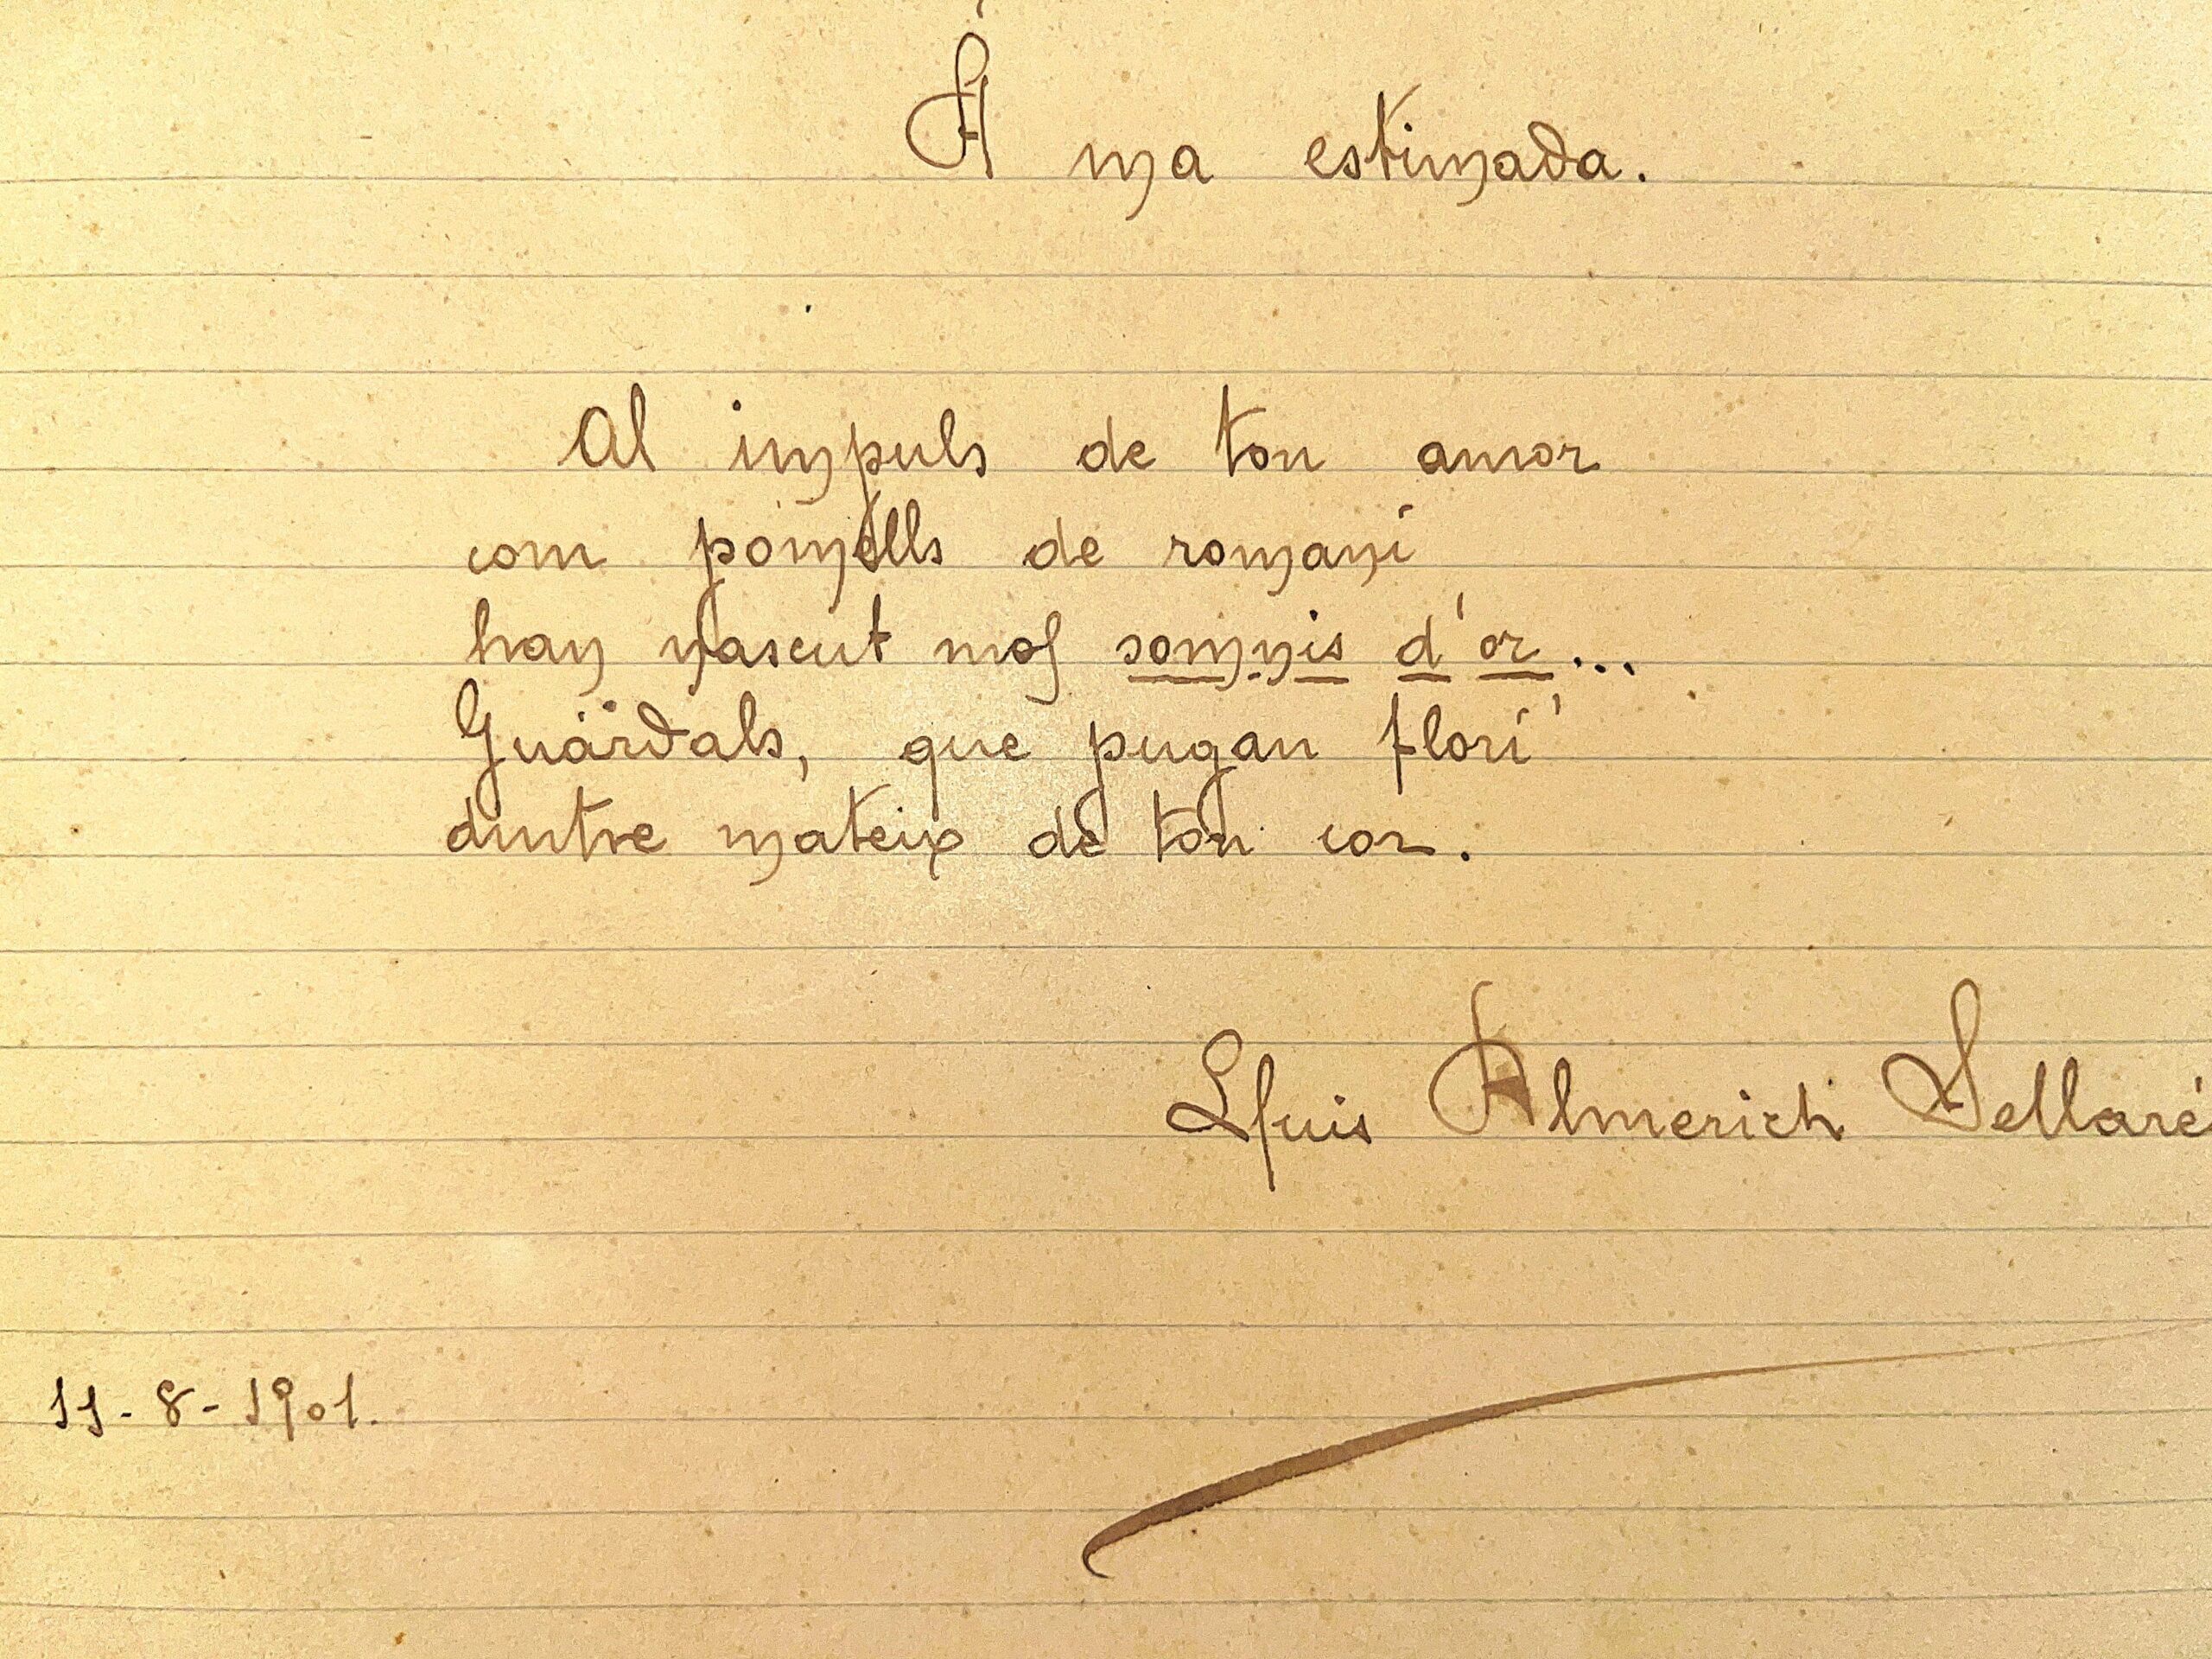 A ma estimada.
Al impuls de ton amor
com pomells de romaní
han nascut mos somnis d'or...
Guárdals, que pugan florí'
dintre mateix de ton cor.
Lluis Almerich Sellaré
11-8-1901.